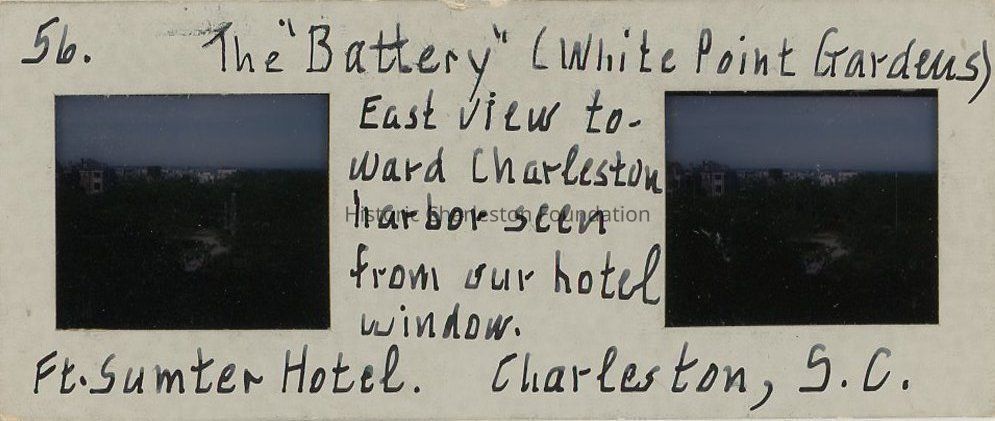 56. The "Battery" (White Point Gardens)
East view to-
ward Charleston
harbor seen
Historic Charleston Foundation
from our hotel
window.
Ft. Sumter Hotel. Charleston, S.C.